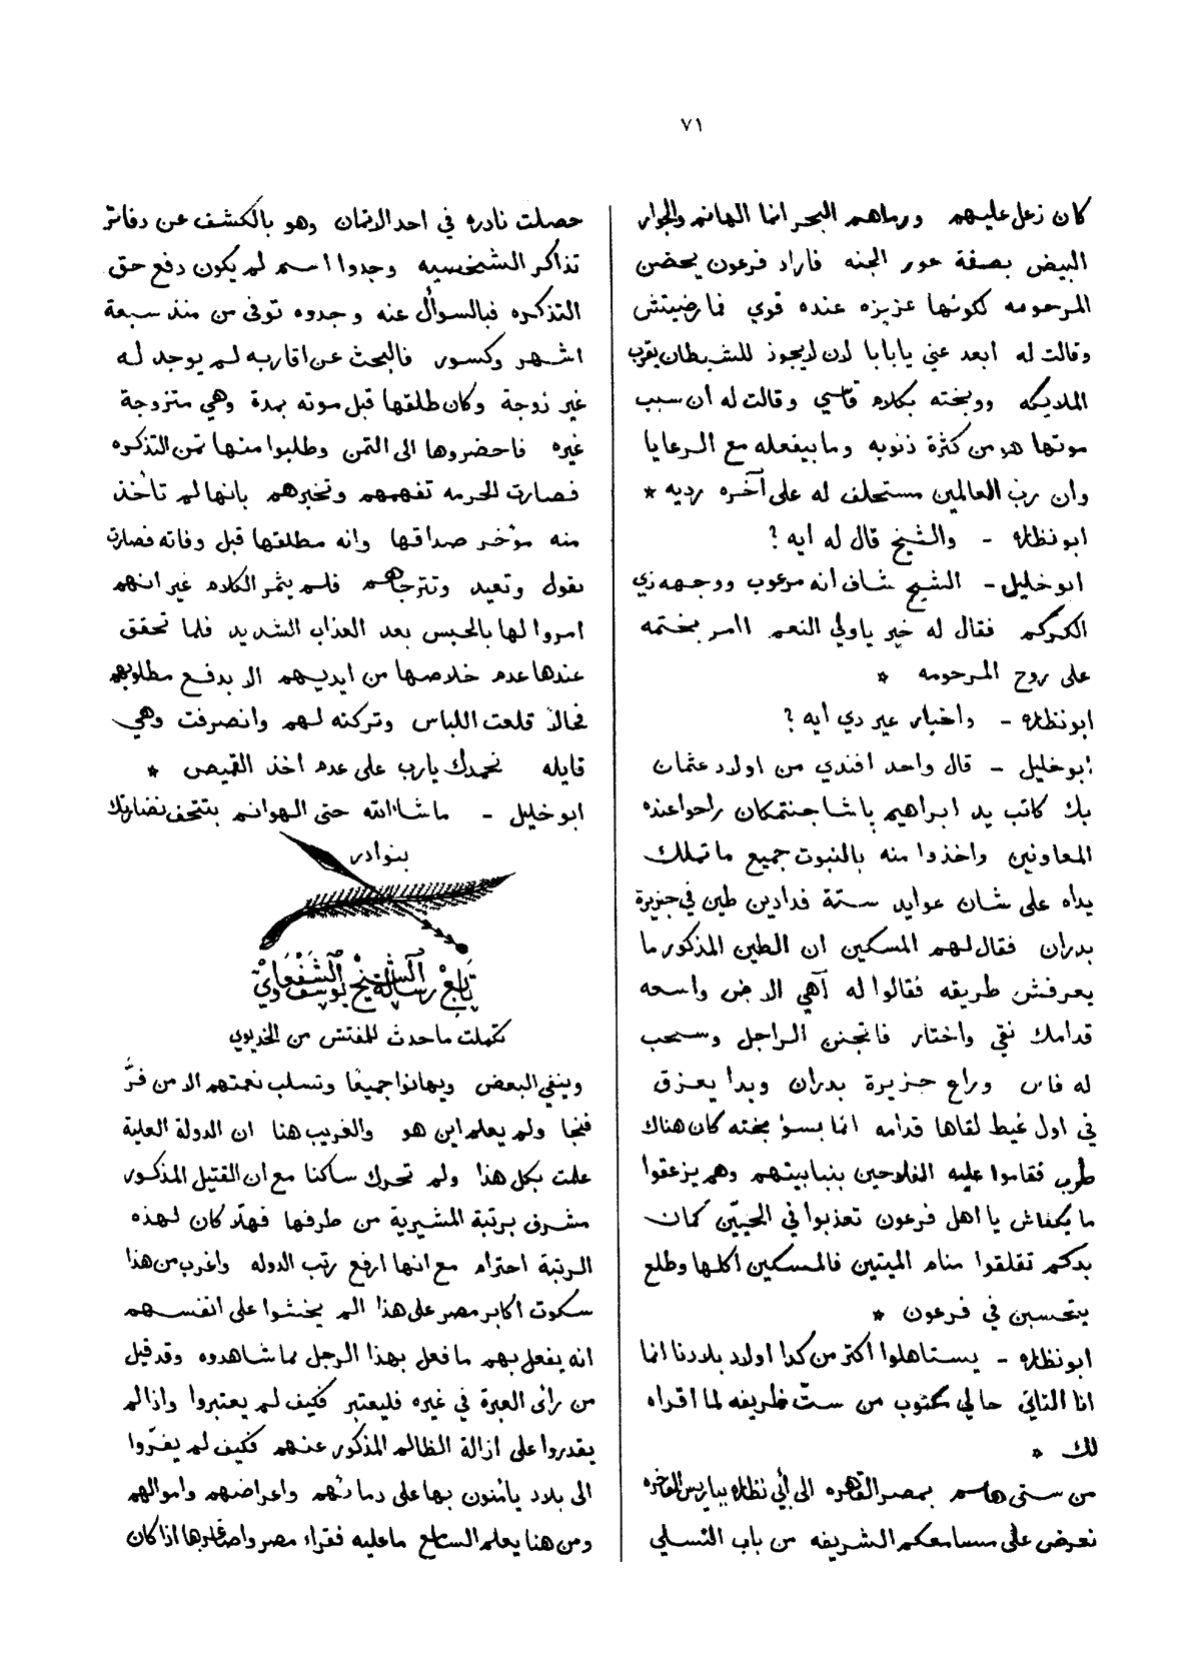 ٧١
كان زعل عليهم ورماهم البحر انما الهانم والجوار
البيض بصفة حور الجنه فاراد فرعون يحضن
المرحومه لكونها عزيزه عنده قوي فما رضيتش
وقالت له ابعد عني يا بابا لان لا يجوز للشيطان يقرب
الملايكه ووبخته بكلام قاسي وقالت له ان سبب
موتها هو من كثرة ذنوبه وما بيفعله مع الرعايا
وان رب العالمين مستحلف له على آخره رديه *
ابو نظاره - والشيخ قال له ايه ?
ابو خليل - الشيخ شاف انه مرعوب ووجهه زي
الكركم فقال له خير يا ولي النعم اامر بختمه
على روح المرحومه *
ابو نظاره - واخبار غير دي ايه ?
ابو خليل - قال واحد افندي من اولاد عثمان
بك كاتب يد ابراهيم باشا جنتمكان راحوا عنده
المعاونين واخذوا منه بالنبوت جميع ما تملك
يداه على شان عوايد ستة فدادين طين في جزيرة
بدران فقال لهم المسكين ان الطين المذكور ما
يعرفش طريقه فقالوا له آهي الارض واسعه
قدامك نقي واختار فانجنن الراجل وسحب
له فاس وراح جزيرة بدران وبدا يعزق
في اول غيط لقاها قدامه انما بسوء بخته كان هناك
طرب فقاموا عليه الفلاحين بنبابيتهم وهم يزعقوا
ما يكفاش يا اهل فرعون تعذبوا في الحيين كمان
بدكم تقلقوا منام الميتين فالمسكين اكلها وطلع
يتحسبن في فرعون *
ابو نظاره - يستاهلوا اكثر من كدا اولاد بلادنا انما
انا التاني جالي مكتوب من ستّ ظريفه لما اقراه
لك *
من ستى هاسم بمصر القاهره الى أبي نظاره بباريس الفاخره
نعرض على مسامعكم الشريفه من باب التسلي
حصلت نادره في احد الاتمان وهو بالكشف عن دفاتر
تذاكر الشخصيه وجدوا اسم لم يكون دفع حق
التذكره فبالسوأل عنه وجدوه توفى من منذ سبعة
اشهر وكسور فالبحث عن اقاربه لم يوجد له
غير زوجة وكان طلقها قبل موته بمدة وهي متزوجة
غيره فاحضروها الى التمن وطلبوا منها تمن التذكره
فصارت الحرمه تفهمهم وتخبرهم بانها لم تأخذ
منه مؤخر صداقها وانه مطلقها قبل وفاته فصارت
تقول وتعيد وتترجاهم فلم يثمر الكلام غير انهم
امروا لها بالحبس بعد العذاب الشديد فلما تحقق
عندها عدم خلاصها من ايديهم الا بدفع مطلوبهم
فحالاً قلعت اللباس وتركته لهم وانصرفت وهي
قايله نحمدك يارب على عدم اخذ القميص *
ابو خليل - ما شا الله حتى الهوانم بتتحف نضارتك
بنوادر
تابع رسالة الشيخ يوسف الشفعاوي
تكملت ما حدث للمفتش من الخديوي
وينفي البعض ويهانوا جميعًا وتسلب نعمتهم الا من فرَّ
فنجا ولم يعلم اين هو والغريب هنا ان الدولة العلية
علمت بكل هذا ولم تحرك ساكنا مع ان القتيل المذكور
مشرف برتبة المشيرية من طرفها فهلّا كان لهذه
الرتبة احترام مع انها ارفع رتب الدوله واغرب من هذا
سكوت اكابر مصر على هذا الم يخشوا على انفسهم
انه يفعل بهم ما فعل بهذا الرجل مما شاهدوه وقد قيل
من رأى العبرة في غيره فليعتبر فكيف لم يعتبروا واذا لم
يقدروا على ازالة الظالم المذكور عنهم فكيف لم يفرّوا
الى بلاد يأمنون بها على دمائهم واعراضهم واموالهم
ومن هنا يعلم السامع ما عليه فقراء مصر واصاغرها اذا كان